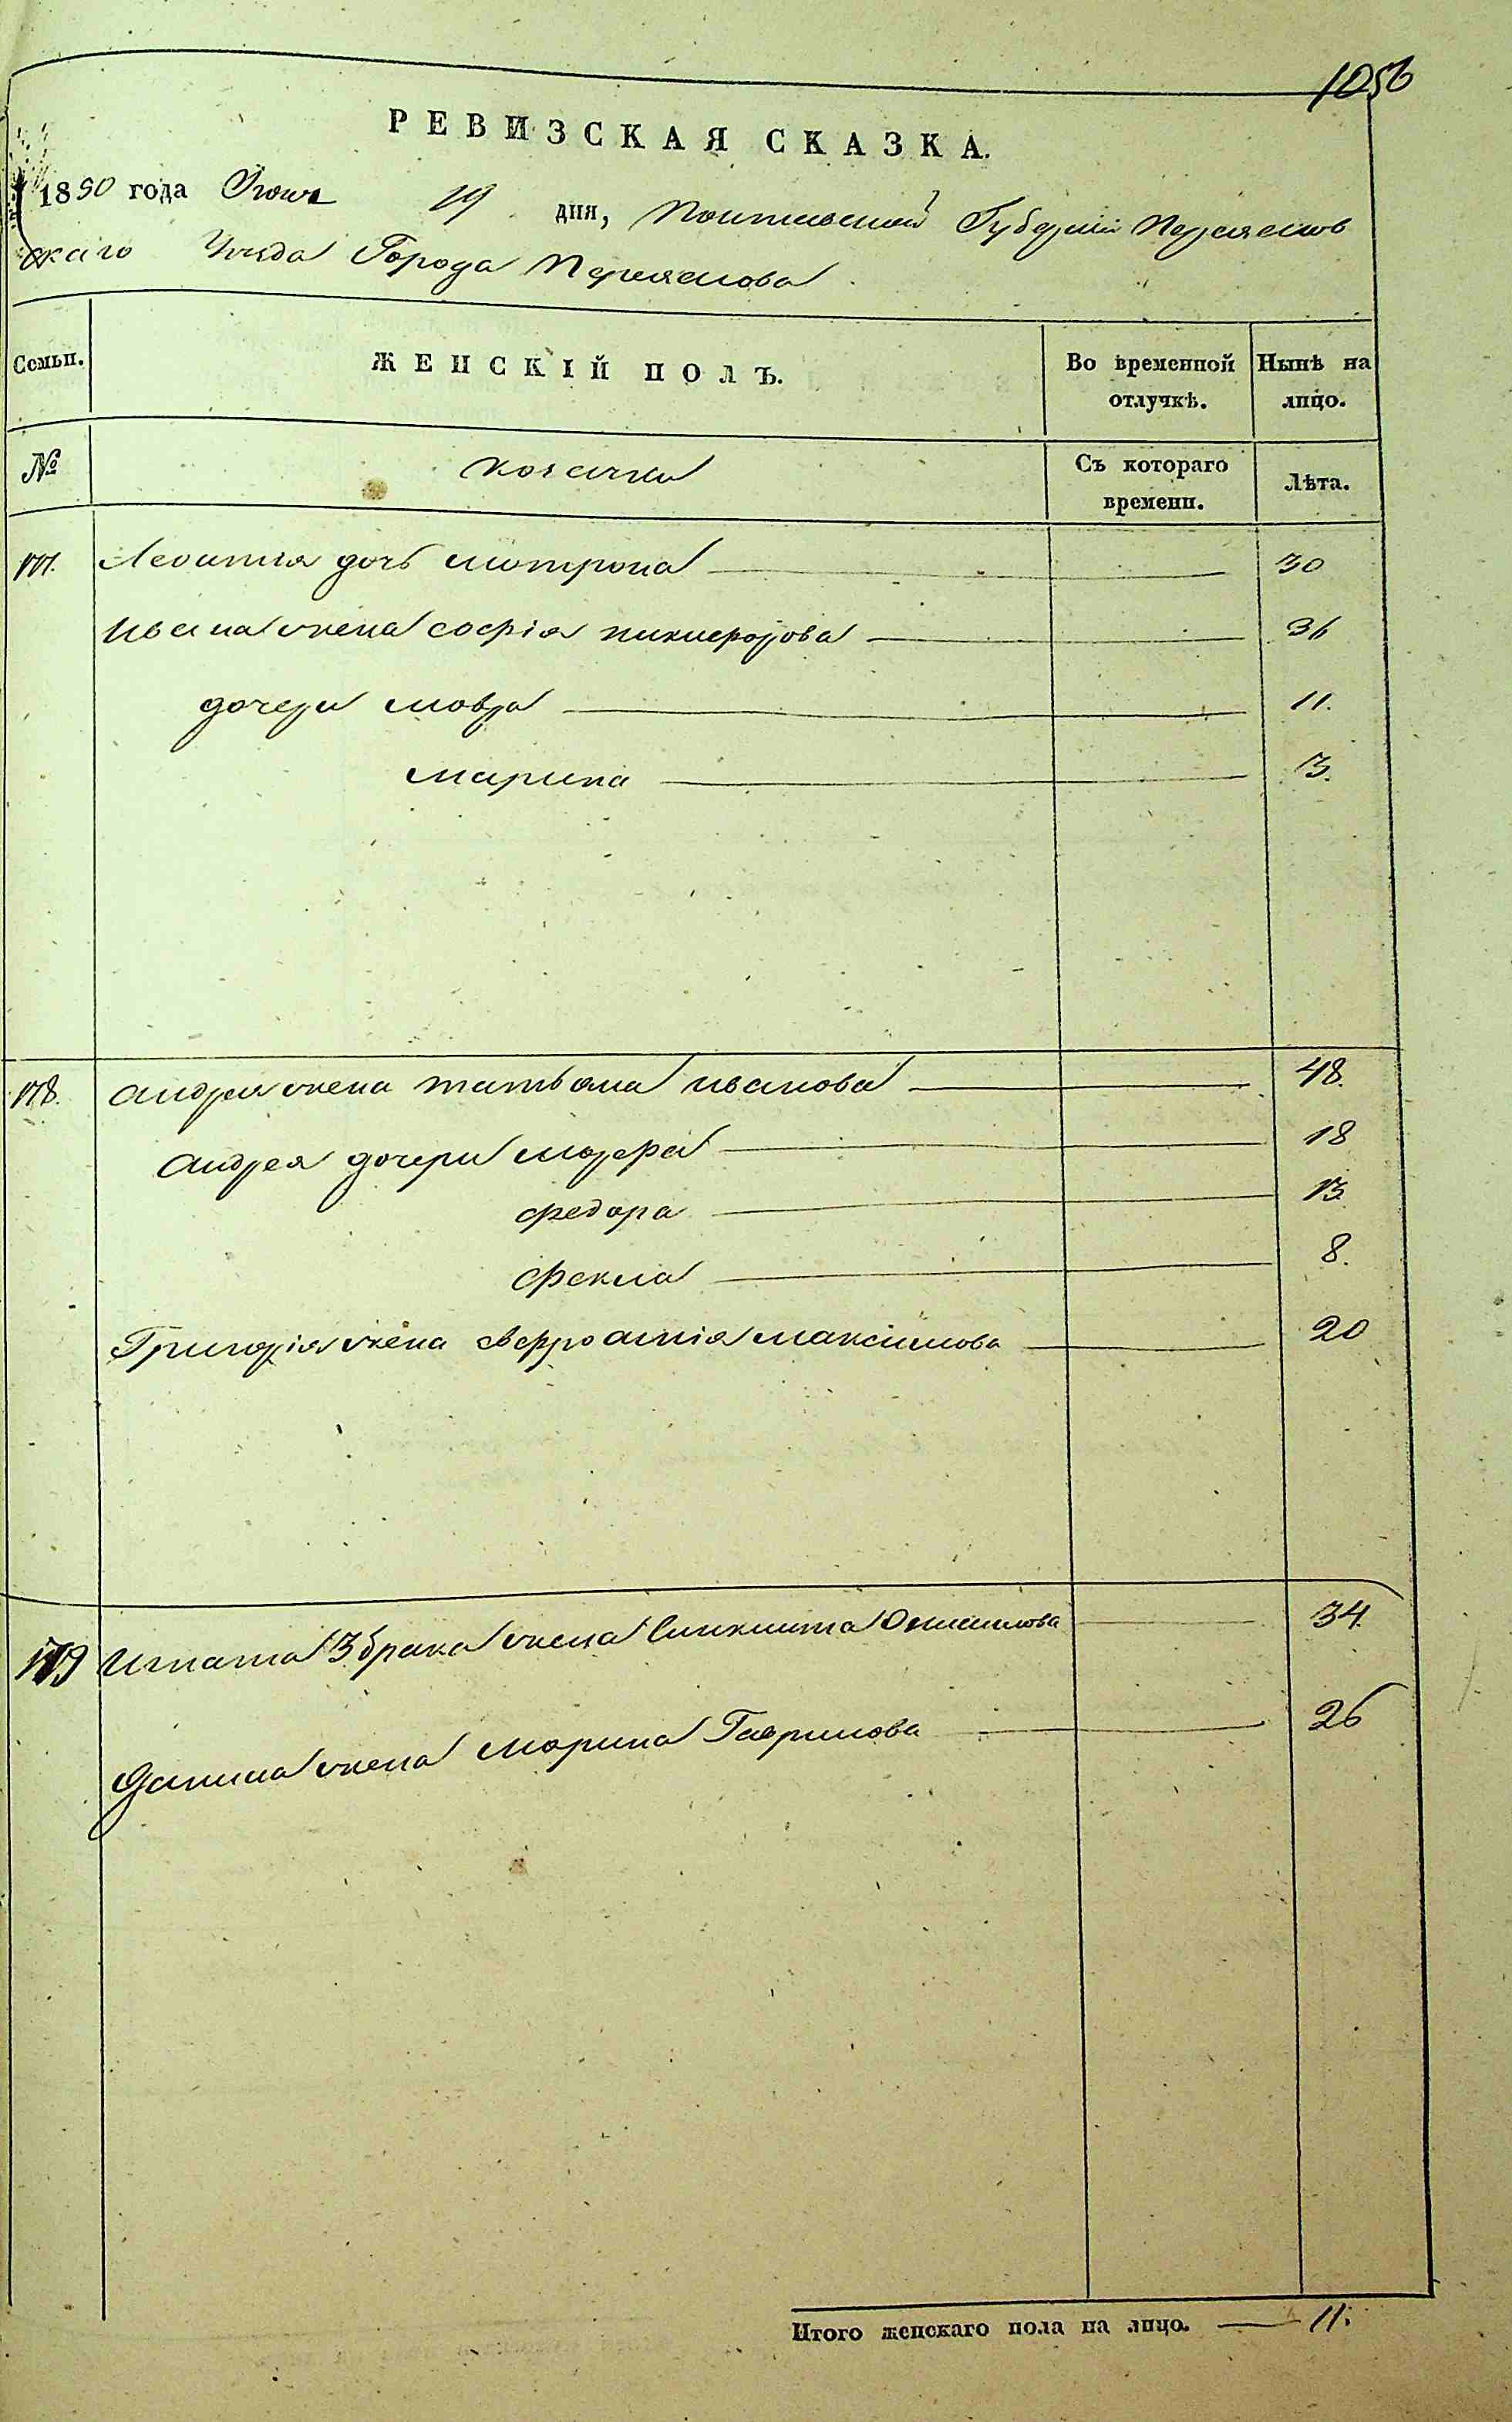 1056
РЕВИЗСКАЯ СКАЗКА.
1850 года Июня 19 дня, Полтавской Губерніи Переяслов
скаго Уезда Города Переяслова
Семьи. ЖЕНСКІЙ ПОЛЪ. Во временной отлучкѣ. Нынѣ на лицо.
№ козачки Съ котораго времени. Лѣта.
177. Леонтія дочь мотрона 30
Ивана жена софія никифорова 36
дочери мовра 11.
марина 3.
178. андрея жена татьяна иванова 48.
андрея дочери марфа 18
федора 13
фекла 8.
Григорія жена евфросинія максимова 20
179 Игната 3 брака жена Синклита Онисимова 34.
Данила жена Марина Гаврилова 26
Итого женскаго пола на лицо. 11.